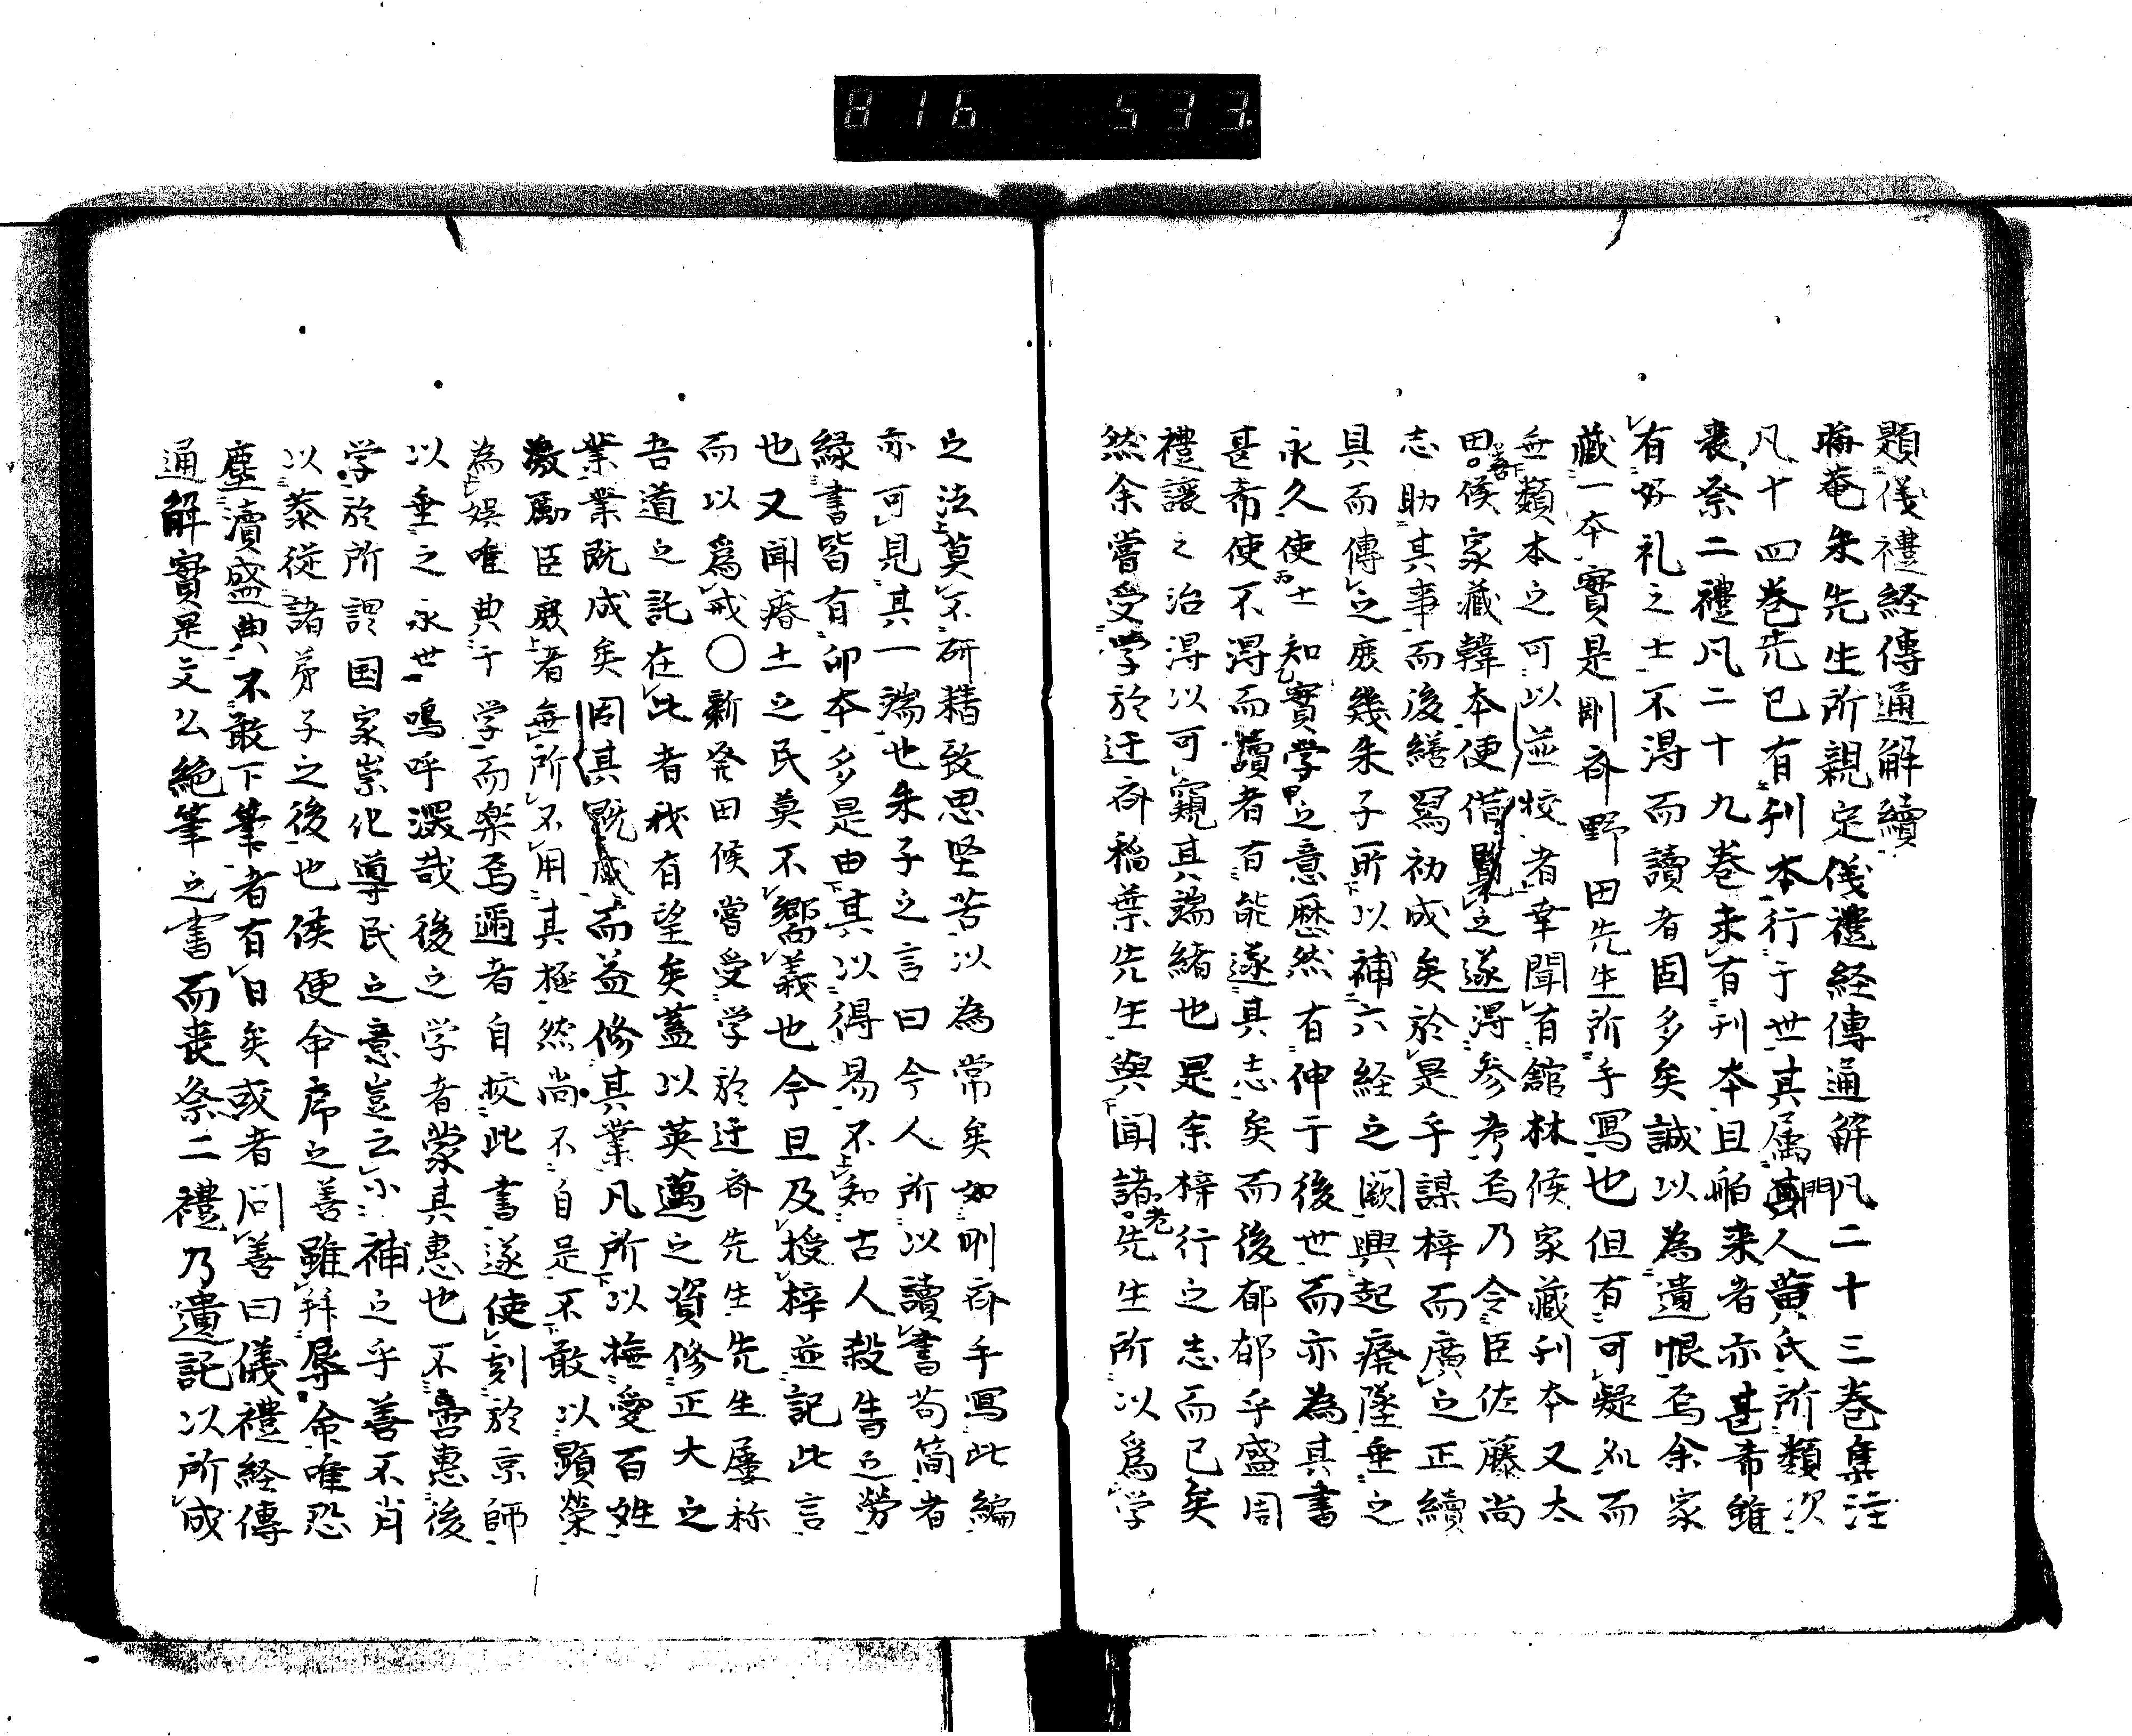 816 533.
題儀禮経傳通解續
晦菴朱先生所親定儀禮経傳通解凡二十三巻集註
凡十四巻先已有刊本行于世其属門人黄氏所類次
喪祭二禮凡二十九巻未有刊本且舶来者亦甚希雖
有好礼之士不得而讀者固多矣誠以為遺恨焉余家
藏一本實是剛斎野田先生所手寫也但有可疑処而
無類本之可以並校者幸聞有館林侯家藏刊本又太
田侯家藏韓本便借之遂得参考焉乃令臣佐藤尚
志助其事而後繕寫初成矣於是乎謀梓而廣之正續
具而傳之庶幾朱子所以補六経之闕興起癈墜垂之
永久使士知實学之意歴然有伸于後世而亦為其書
甚希使不得而讀者有能遂其志矣而後郁郁乎盛周
禮讓之治得以可窺其端緒也是余梓行之志而已矣
然余嘗受学於迂斎稲葉先生與聞諸老先生所以爲学
之法莫不研精致思堅苦以為常矣如剛斎手寫此編
亦可見其一端也朱子之言曰今人所以讀書苟简者
緑書皆有印本多是由其以得易不知古人殺青之勞
也又聞瘠土之民莫不嚮義也今旦及授梓並記此言
而以爲戒〇新発田侯嘗受学於迂斎先生先生屢称
吾道之託在此者我有望矣蓋以英邁之資修正大之
業業既成矣固其既成而益修其業凡所以撫愛百姓
激勵臣庶者無所不用其極然尚不自是不敢以顕榮
為娯唯典于学而楽焉迺者自挍此書遂使刻於京師
以垂之永世嗚呼深哉後之学者蒙其惠也不啻惠後
学於所謂国家崇化導民之意豈云小補之乎善不肖
以忝從諸弟子之後也侯便命序之善雖拝辱命唯恐
塵瀆盛典不敢下筆者有日矣或者问善曰儀禮経傳
通解實是文公絶筆之書而喪祭二禮乃遺託以所成